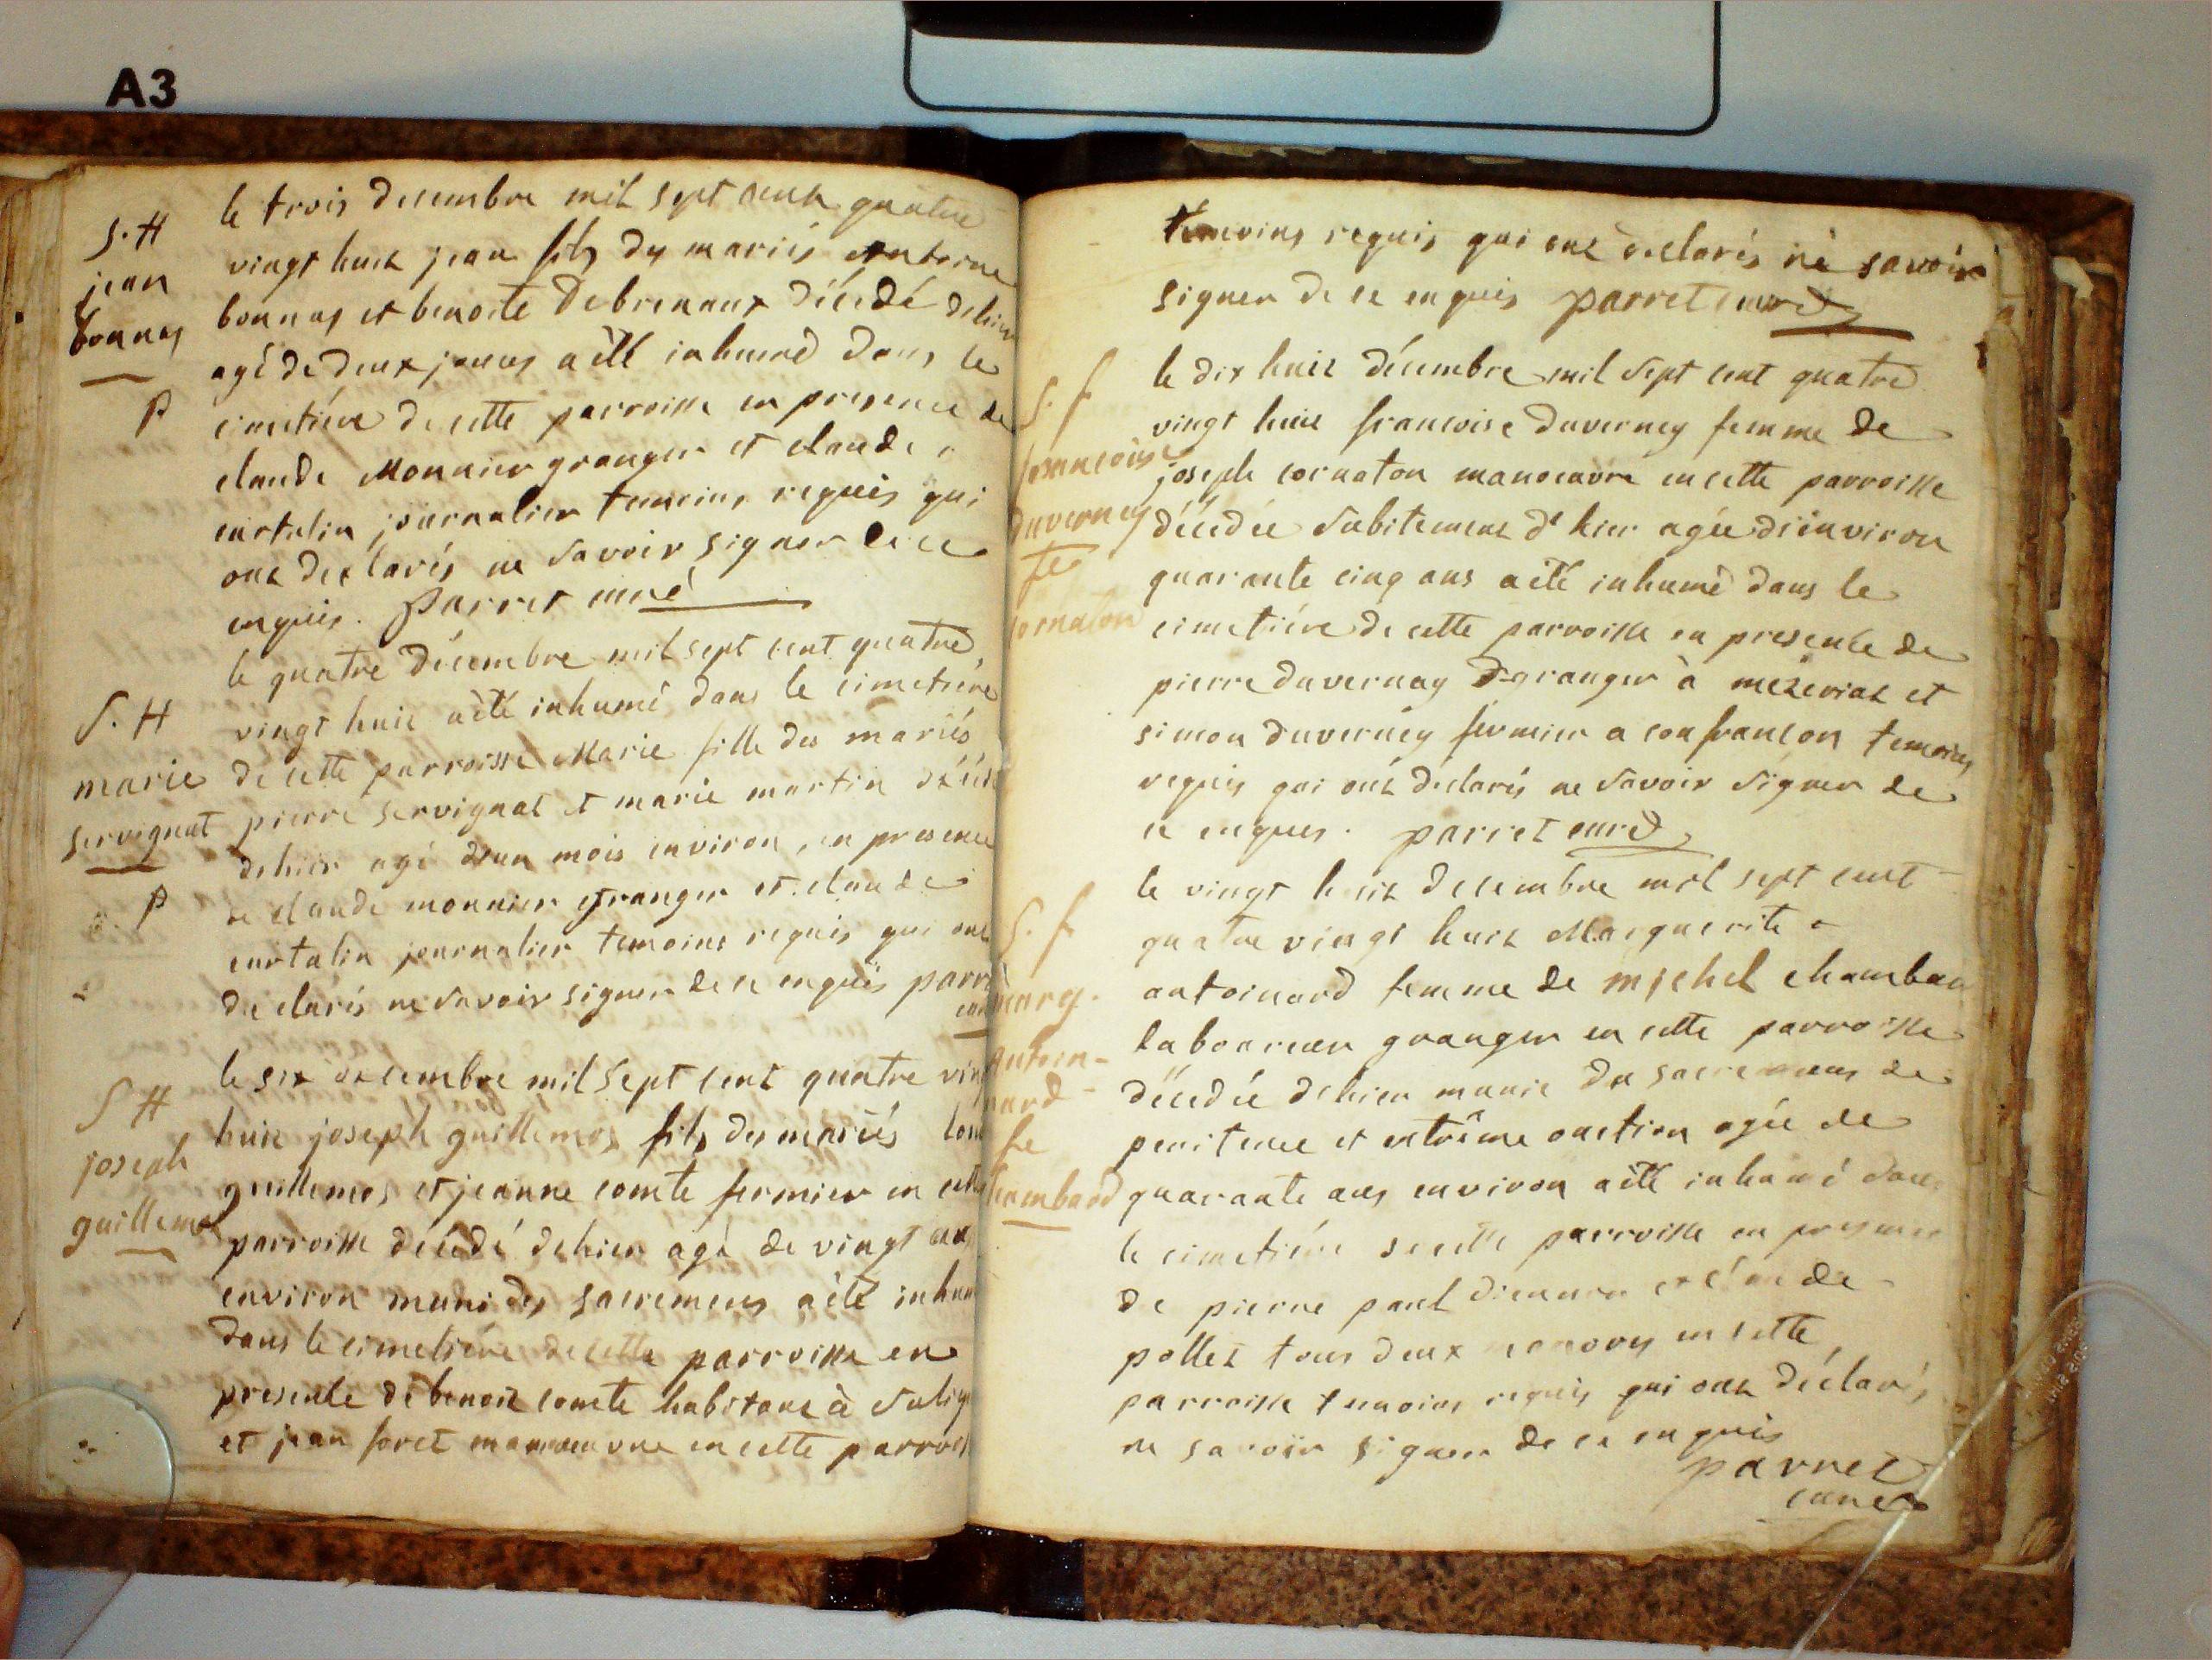 A3
S. H
jean
bonnas
P
le trois decembre mil sept cent quatre
vingt huit jean fils des mariés Antoine
bonnas et benoite Debrenaux décédé dehier
agé de deux jours a été inhumé dans le
cimetière de cette parroisse en presence de
claude Monnier granger et claude
curtalin journalier temoins requis qui
ont declarés ne savoir signer de ce
enquis. Parret curé
S. H
marie
servignat
P
le quatre décembre mil sept cent quatre
vingt huit a été inhumé dans le cimetiere
de cette parroisse Marie fille des mariés
pierre servignat et marie martin
dehier agé d'un mois environ, en presence
de claude monnier granger et claude
curtalin journalier temoins requis qui ont
declarés ne savoir signer de ce enquis parret
S H
joseph
guillemos
le six decembre mil sept cent quatre vin
huit joseph guillemos fils des mariés
guillemos et jeanne comte fermier en cette
parroisse décédé dehier agé de vingt ans
environ muni des sacremens a été inhum
dans le cimetière de cette parroisse en
presence de benoit comte habitant à
et jean foret manoeuvre en cette parroiss
temoins requis qui ont declarés ne savoir
signer de ce enquis parret curé
S. f
francoise
duverney
fe
cornaton
le dix huit décembre mil sept cent quatre
vingt huit francoise duverney femme de
joseph cornaton manoeuvre en cette parroisse
décédée subitement d'hier agée d'environ
quarante cinq ans a été inhumé dans le
cimetière de cette parroisse en presence de
pierre duvernay granger à mezeriat et
simon duverney fermier a confrancon temoins
requis qui ont declarés ne savoir signer de
ce enquis. parret curé
S. f
marg.
Antoin-
nard
fe
chambard
le vingt huit decembre mil sept cent
quatre vingt huit Marguerite
antoinard femme de michel chambar
laboureur granger en cette parroisse
décédée dehier munie des sacremens de
penitence et extrême onction agée de
quarante ans environ a été inhumé dans
le cimetière de cette parroisse en presence
de pierre paul et claude
pollet tous deux en cette
parroisse temoins requis qui ont déclarés
ne savoir signer de ce enquis
parret
curé